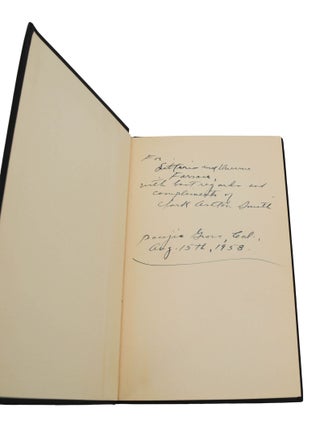 For
and
Farraro,
with best regards and
complements of
Clark Ashton Smith
Pacific Grove, Cal,
Aug. 15th, 1958.